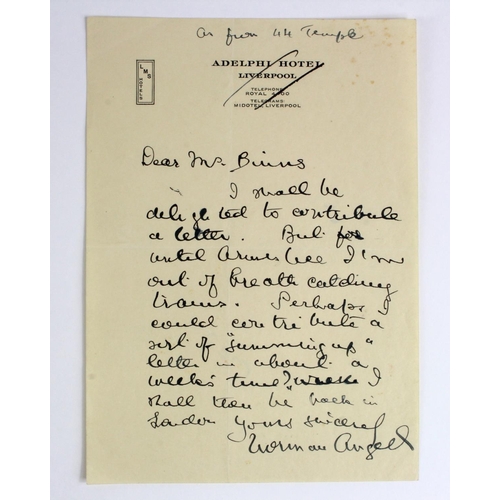 as from 44 Temple
LMS
HOTELS
ADELPHI HOTEL
LIVERPOOL
TELEPHONE
ROYAL 4200
TELEGRAMS
MIDOTEL, LIVERPOOL
Dear Mr. Binns
I shall be
delighted to contribute
a letter. But for
until Armistice I'm
out of breath catching
trains. Perhaps I
could contribute a
sort of "summing up"
letter in about a
week's time? I
shall then be back in
London Yours sincerely
Norman Angell